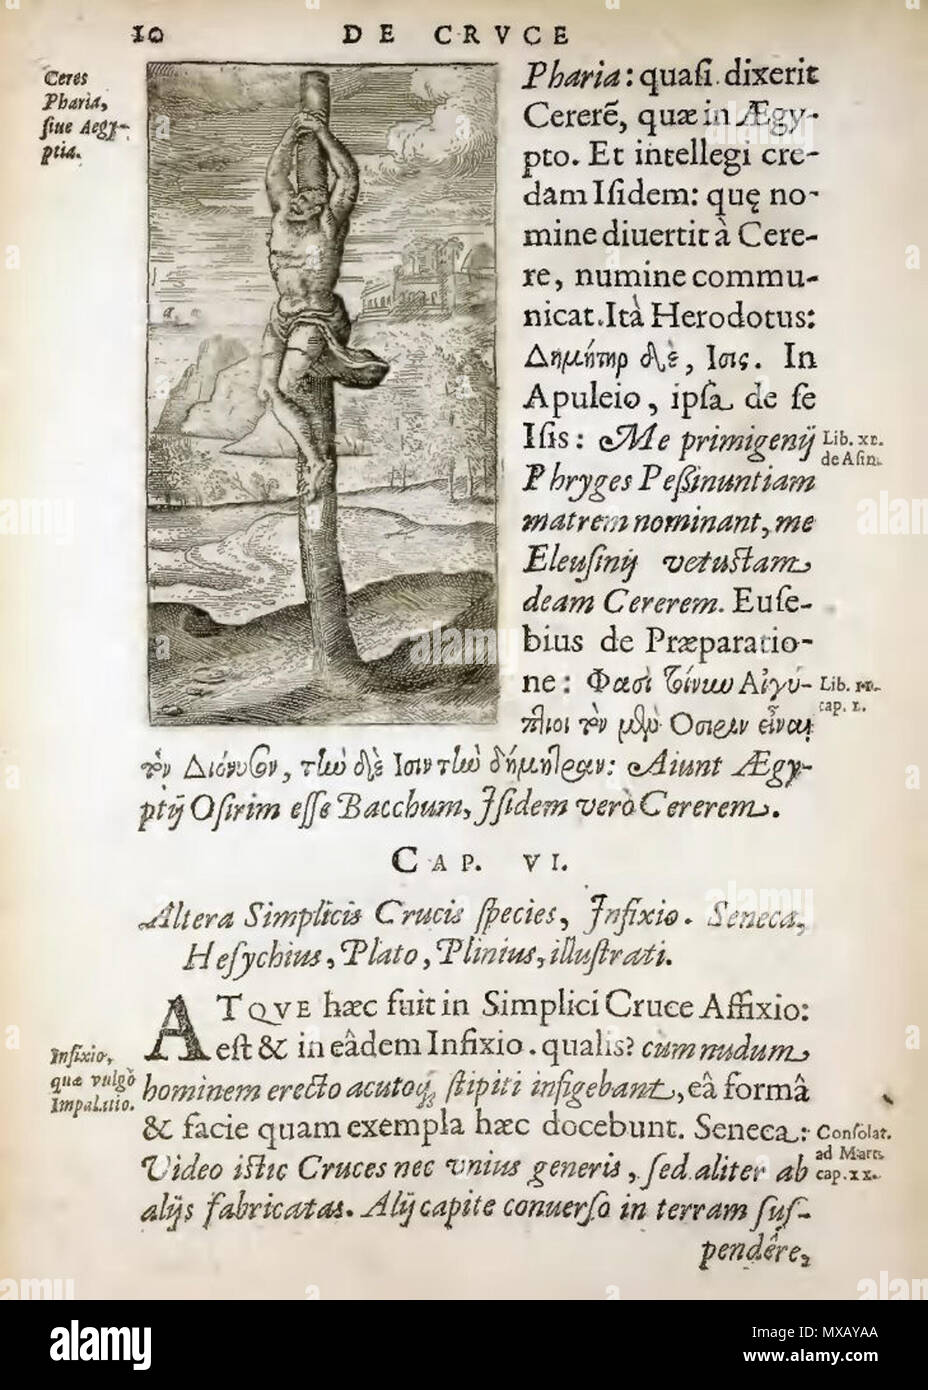 10 DE CRVCE
Ceres
Pharia,
siue Aegy-
ptia.
Pharia: quasi dixerit
Cererē, quæ in Ægy-
pto. Et intellegi cre-
dam Isidem: quę no-
mine diuertit à Cere-
re, numine commu-
nicat. Ità Herodotus:
Δημήτηρ δὲ, Ισις. In
Apuleio, ipsa de se
Isis: Me primigenij
Lib. XI.
de Asin.
Phryges Peßinuntiam
matrem nominant, me
Eleusinij vetustam
deam Cererem. Euse-
bius de Præparatio-
ne: Φασὶ Αἰγύ-
Lib. II.
cap. I.
πτιοι τὸν μὲν Οσιριν εἶναι
τὸν Διόνυσον, τὴν δὲ Ισιν τὴν δήμητραν: Aiunt Ægy-
ptij Osirim esse Bacchum, Isidem verò Cererem.
CAP. VI.
Altera Simplicis Crucis species, Infixio. Seneca,
Hesychius, Plato, Plinius, illustrati.
ATQVE hæc fuit in Simplici Cruce Affixio:
est & in eâdem Infixio. qualis? cum nudum
Infixio,
quæ vulgò
Impalatio.
hominem erecto acutoq; stipiti infigebant, eâ formâ
& facie quam exempla hæc docebunt. Seneca:
Consolat.
ad Marc.
cap. XX.
Video istic Cruces nec vnius generis, sed aliter ab
alijs fabricatas. Alij capite conuerso in terram sus-
pendêre,
alamy
Image ID: MXAYAA
www.alamy.com